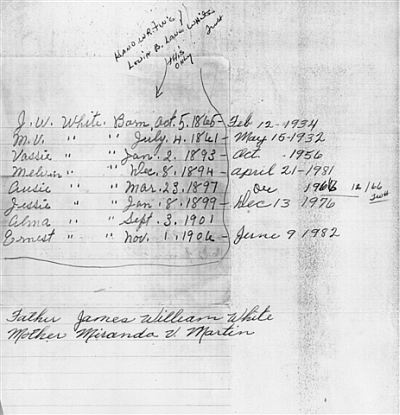 HANDWRITING
B. Lane White
this
only
J. W. White Born, Oct. 5. 1865 - Feb 12 - 1934
M. V. " " July. 4. 1861 - May 15 - 1932
Vassie " " Jan. 2. 1893 - Oct. - 1956
Melvin " " Dec. 8. 1894 - april 21 - 1981
Ausie " " Mar. 23. 1897 Dec 1966 12/66
Jessie " " Jan. 8. 1899 - Dec 13 1976
Alma " " Sept. 3. 1901
Ernest " " Nov. 1. 1906 - June 9 1982
Father James William White
Mother Miranda V. Martin